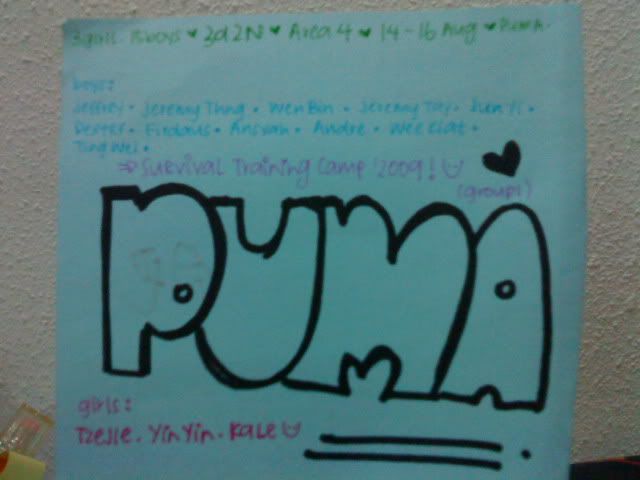 3girls 15boys ♥ 3d 2N ♥ Area 4 ♥ 14-16 Aug ♥ PUMA.
boys:
Jeffrey • Jeremy Thng • Wen Bin • Jeremy Tay •
Dexter • Firdaus • • Andre • Wee Kiat •
Ting Wei •
⇒ Survival Training Camp '2009!
(group1)
PUMA
girls:
Tzelle. Yin Yin. Kale